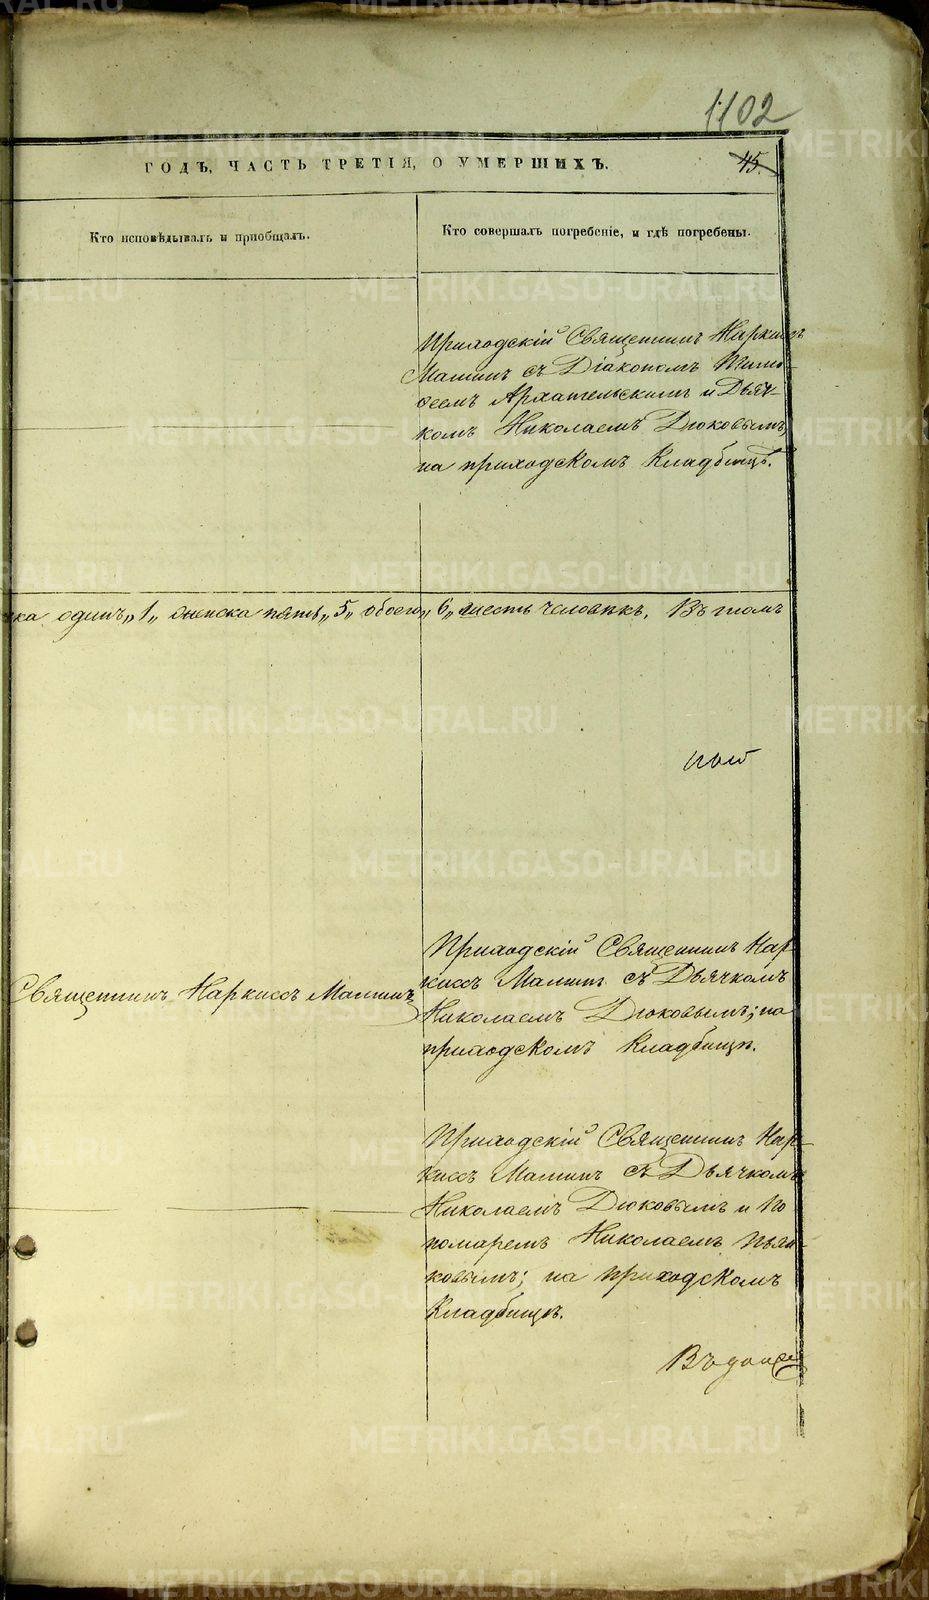 1102
ГОДЪ, ЧАСТЬ ТРЕТІЯ, О УМЕРШИХЪ.
45.
Кто исповѣдывалъ и пріобщалъ.
Кто совершалъ погребеніе, и гдѣ погребены.
Приходскій Священникъ Наркиссъ
Мамин съ Діакономъ
Архангельскимъ и Дьяч-
комъ Николаемъ Дюковымъ,
на приходскомъ Кладбищѣ.
одинъ „1„ женска пять „5„ обоего „6„ шесть человѣкъ. Въ томъ
Приходскій Священникъ Нар-
киссъ Маминъ съ Дьячкомъ
Священникъ Наркиссъ Маминъ
Николаемъ Дюковымъ; на
приходскомъ Кладбищѣ.
Приходскій Священникъ Нар-
киссъ Маминъ съ Дьячкомъ
Николаемъ Дюковымъ и По
номаремъ Николаемъ Пьян-
ковымъ; на приходскомъ
Кладбищѣ.
METRIKI.GASO-URAL.RU